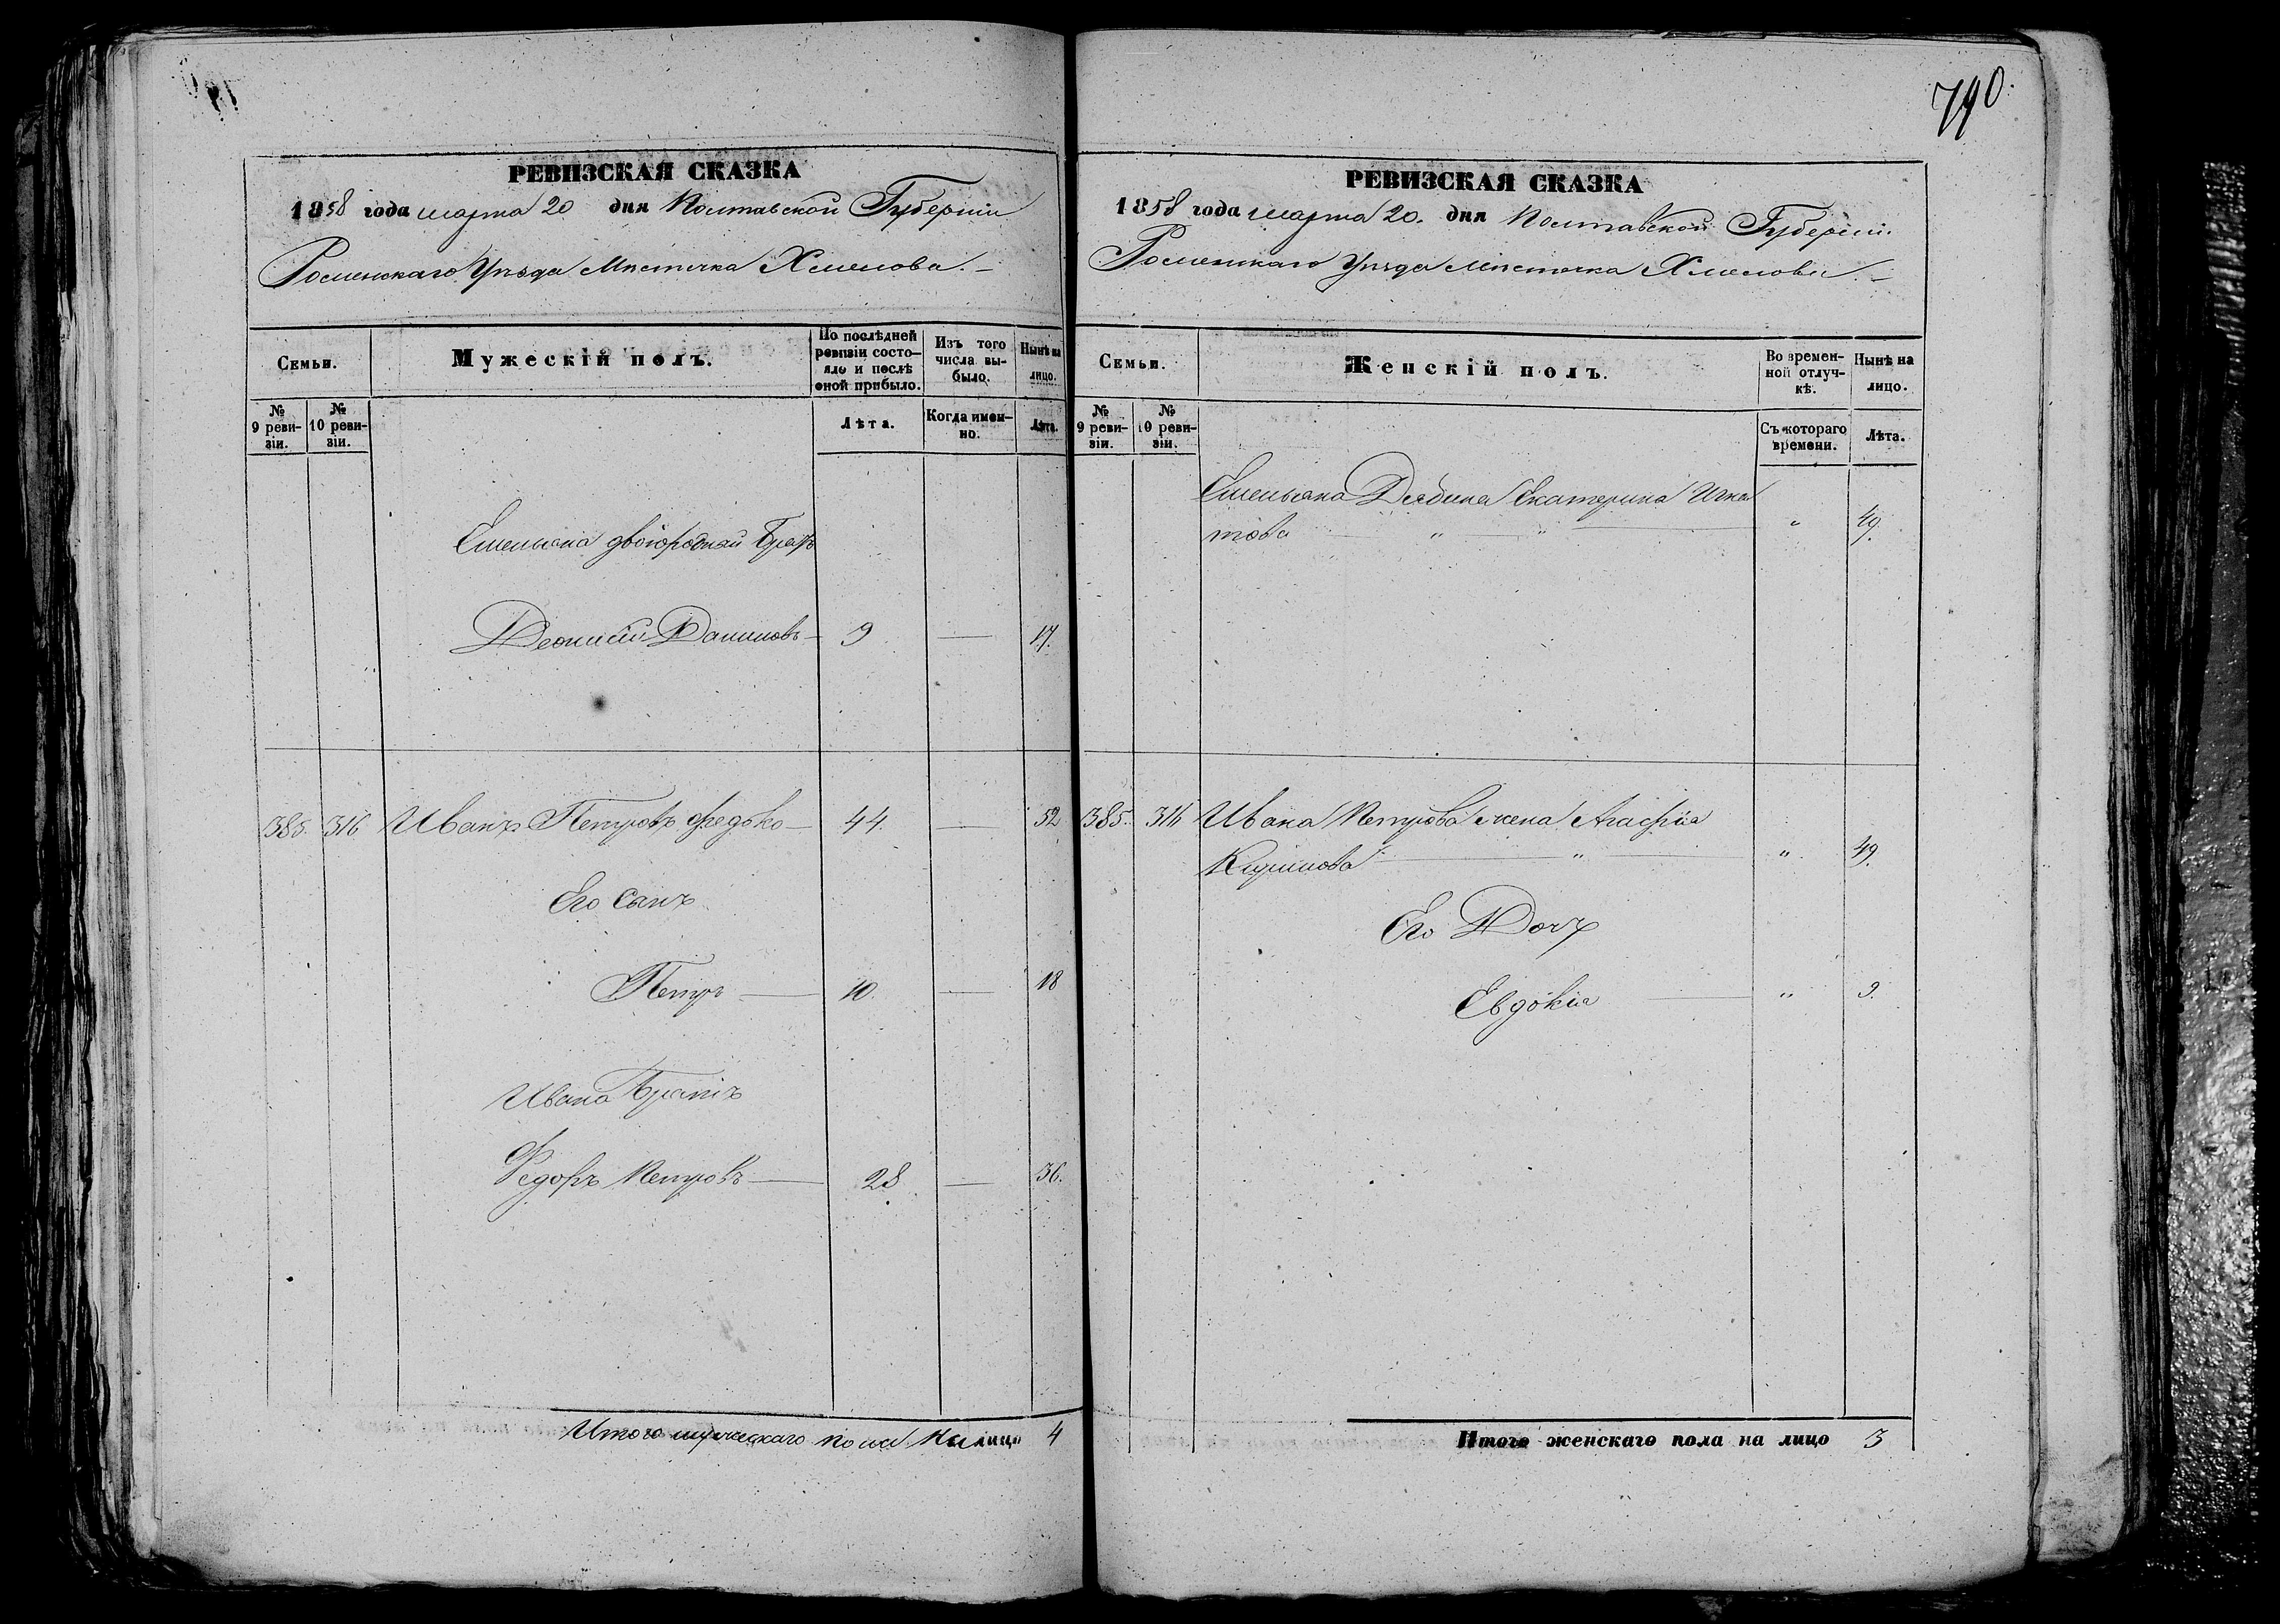 790.
РЕВИЗСКАЯ СКАЗКА
1858 года марта 20 дня Полтавской Губерніи
Роменскаго Уѣзда Мѣстечка Хмелова.
Семьи.
Мужескій полъ.
По послѣдней ревизіи состояло и послѣ оной прибыло.
Изъ того числа выбыло.
Нынѣ на лицо.
№ 9 ревизіи.
№ 10 ревизіи.
Лѣта.
Когда именно.
Лѣта.
Емельяна двоюродный Братъ
Деонисій Даниловъ — 9 — 17.
385. 316 Иванъ Петровъ Федько — 44. — 52
Его Сынъ
Петръ — 10. — 18
Ивана Братъ
Федоръ Петровъ — 28 — 36.
Итого мужескаго пола на лицо 4
РЕВИЗСКАЯ СКАЗКА
1858 года марта 20. дня Полтавской Губерніи.
Роменскаго Уѣзда Мѣстечка Хмелова
Семьи.
Женскій полъ.
Во временной отлучкѣ.
Нынѣ на лицо.
№ 9 ревизіи.
№ 10 ревизіи.
Съ котораго времени.
Лѣта.
Емельяна Екатерина Игна
това " " — " 49.
385. 316 Ивана Петрова жена Агафія
Кирилова — " — " 49.
Его Дочь
Евдокія — " 9.
Итого женскаго пола на лицо 3